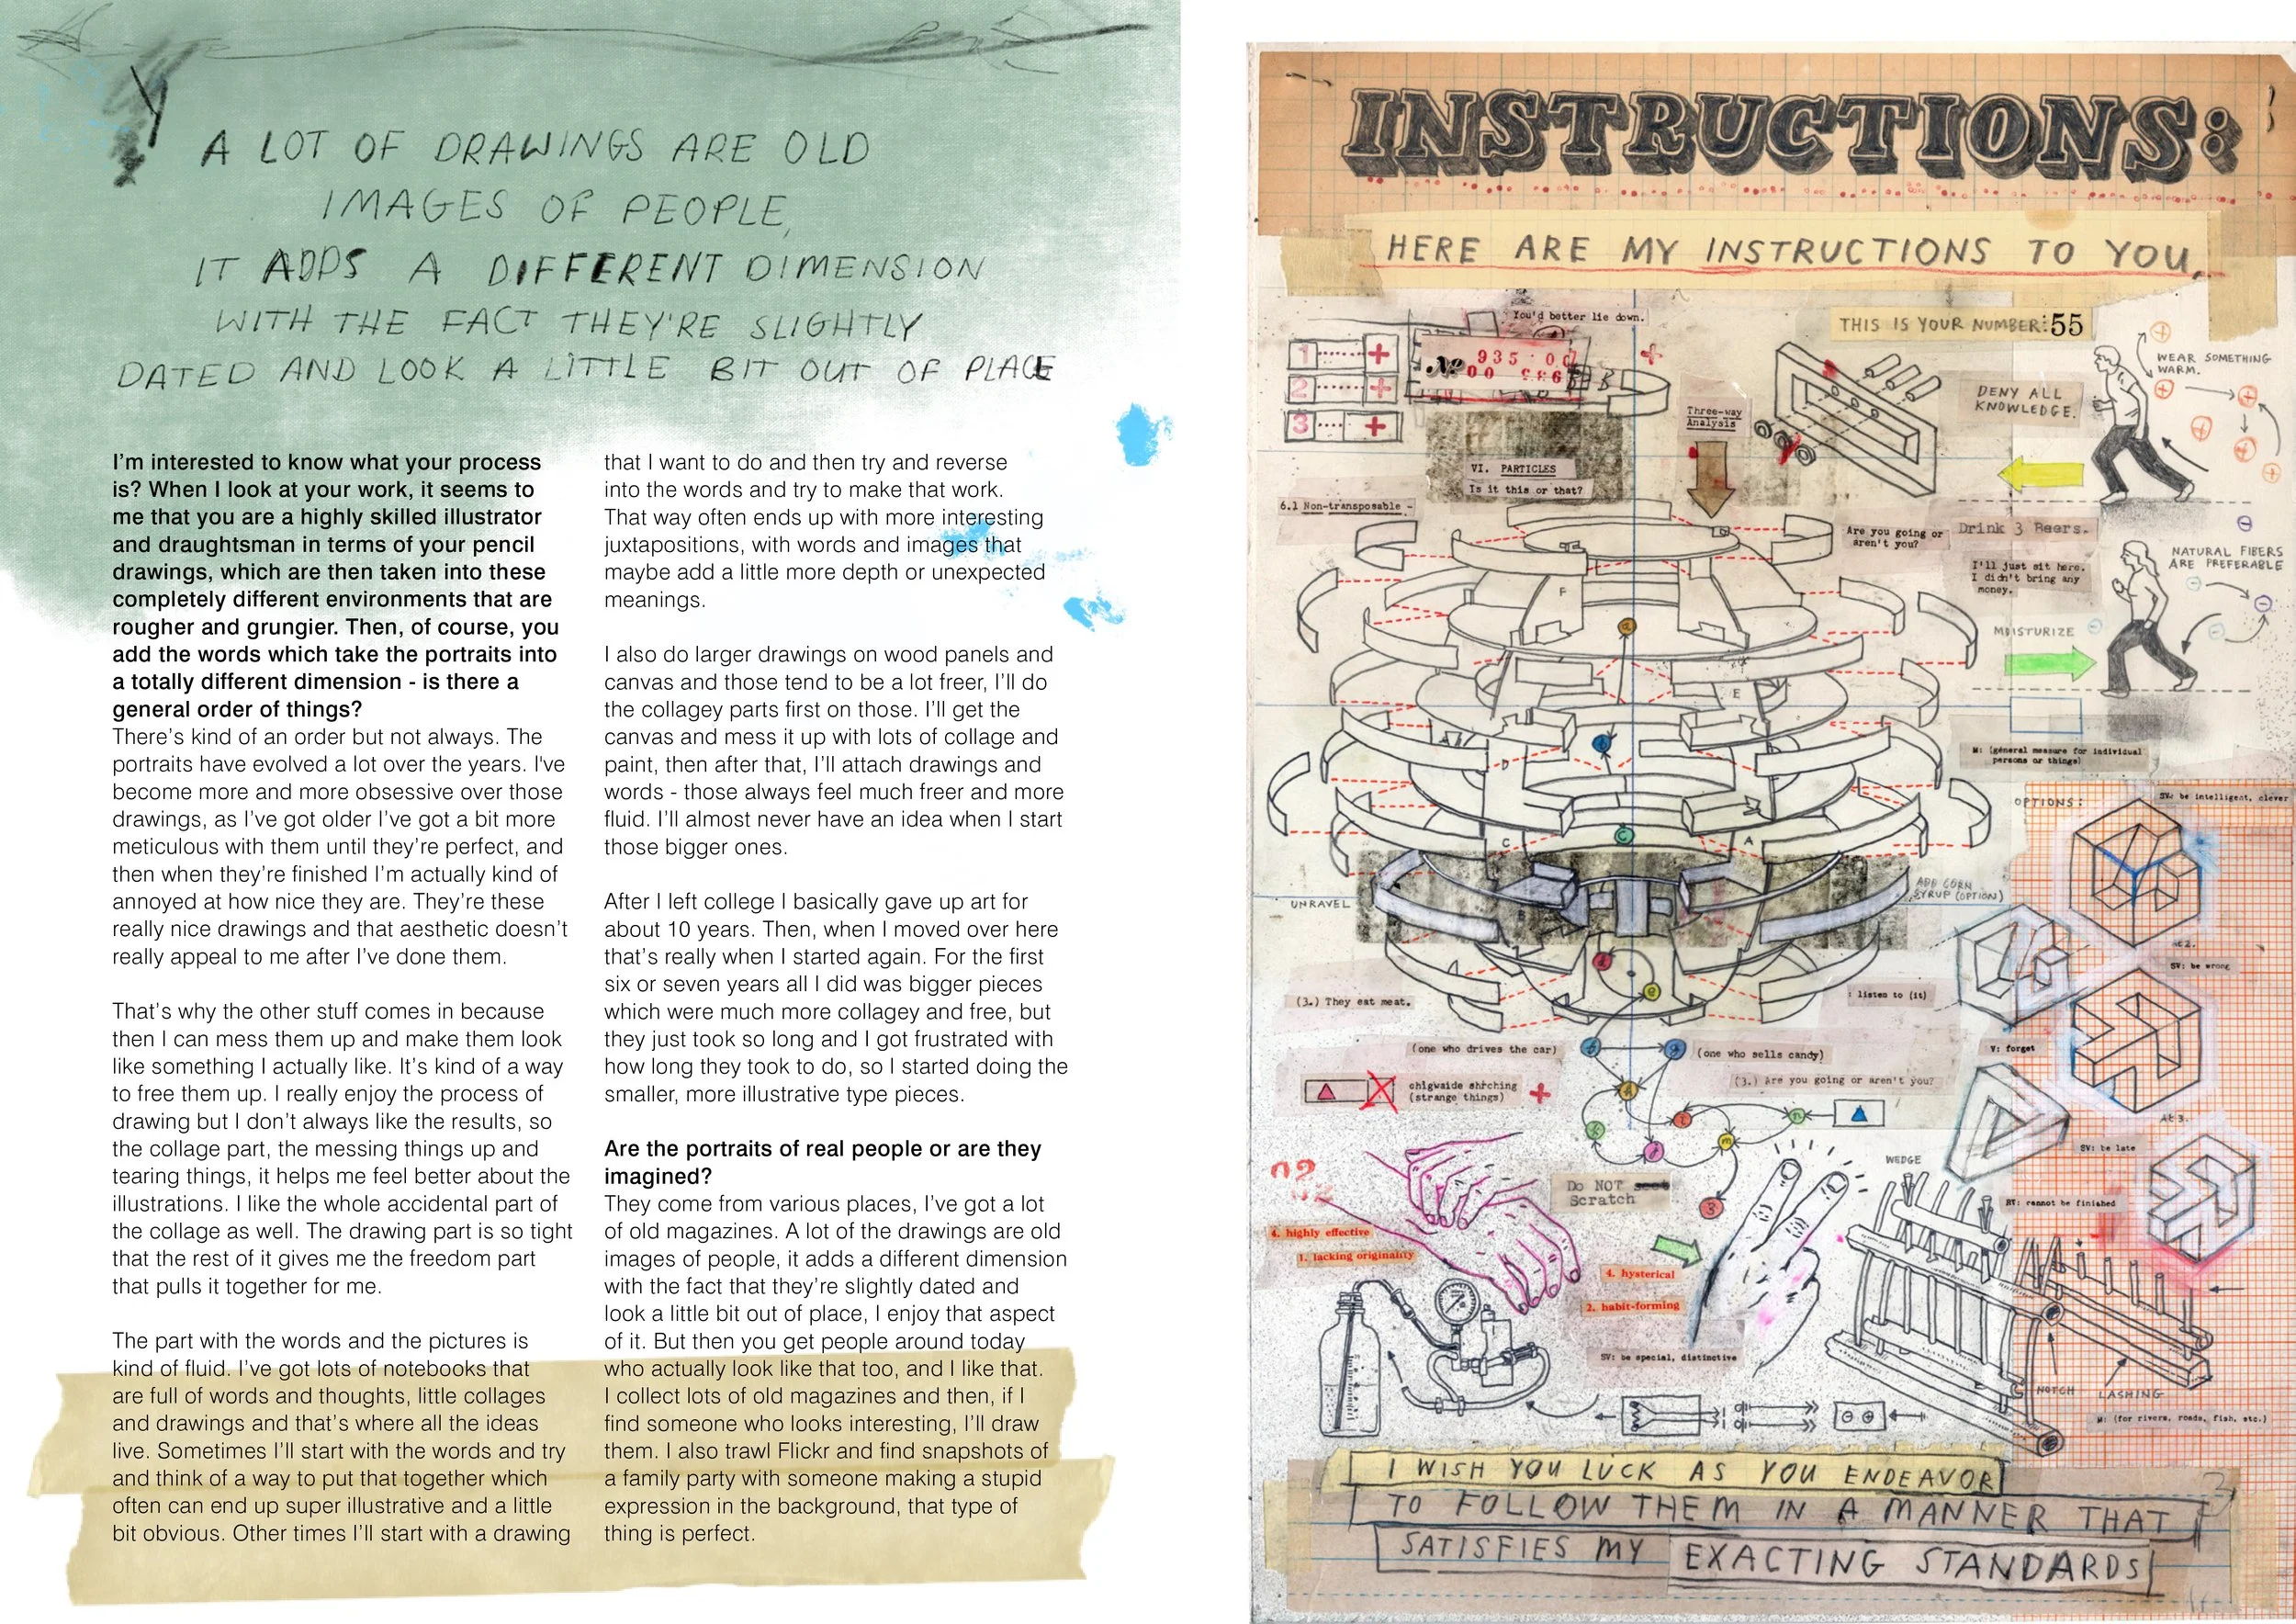 A LOT OF DRAWINGS ARE OLD
IMAGES OF PEOPLE,
IT ADDS A DIFFERENT DIMENSION
WITH THE FACT THEY'RE SLIGHTLY
DATED AND LOOK A LITTLE BIT OUT OF PLACE
I'm interested to know what your process
is? When I look at your work, it seems to
me that you are a highly skilled illustrator
and draughtsman in terms of your pencil
drawings, which are then taken into these
completely different environments that are
rougher and grungier. Then, of course, you
add the words which take the portraits into
a totally different dimension - is there a
general order of things?
There's kind of an order but not always. The
portraits have evolved a lot over the years. I've
become more and more obsessive over those
drawings, as I've got older I've got a bit more
meticulous with them until they're perfect, and
then when they're finished I'm actually kind of
annoyed at how nice they are. They're these
really nice drawings and that aesthetic doesn't
really appeal to me after I've done them.
That's why the other stuff comes in because
then I can mess them up and make them look
like something I actually like. It's kind of a way
to free them up. I really enjoy the process of
drawing but I don't always like the results, so
the collage part, the messing things up and
tearing things, it helps me feel better about the
illustrations. I like the whole accidental part of
the collage as well. The drawing part is so tight
that the rest of it gives me the freedom part
that pulls it together for me.
The part with the words and the pictures is
kind of fluid. I've got lots of notebooks that
are full of words and thoughts, little collages
and drawings and that's where all the ideas
live. Sometimes I'll start with the words and try
and think of a way to put that together which
often can end up super illustrative and a little
bit obvious. Other times I'll start with a drawing
that I want to do and then try and reverse
into the words and try to make that work.
That way often ends up with more interesting
juxtapositions, with words and images that
maybe add a little more depth or unexpected
meanings.
I also do larger drawings on wood panels and
canvas and those tend to be a lot freer, I'll do
the collagey parts first on those. I'll get the
canvas and mess it up with lots of collage and
paint, then after that, I'll attach drawings and
words - those always feel much freer and more
fluid. I'll almost never have an idea when I start
those bigger ones.
After I left college I basically gave up art for
about 10 years. Then, when I moved over here
that's really when I started again. For the first
six or seven years all I did was bigger pieces
which were much more collagey and free, but
they just took so long and I got frustrated with
how long they took to do, so I started doing the
smaller, more illustrative type pieces.
Are the portraits of real people or are they
imagined?
They come from various places, I've got a lot
of old magazines. A lot of the drawings are old
images of people, it adds a different dimension
with the fact that they're slightly dated and
look a little bit out of place, I enjoy that aspect
of it. But then you get people around today
who actually look like that too, and I like that.
I collect lots of old magazines and then, if I
find someone who looks interesting, I'll draw
them. I also trawl Flickr and find snapshots of
a family party with someone making a stupid
expression in the background, that type of
thing is perfect.
INSTRUCTIONS:
HERE ARE MY INSTRUCTIONS TO YOU.
You'd better lie down.
THIS IS YOUR NUMBER: 55
1 +
2 +
3 +
№ 935
WEAR SOMETHING
WARM.
DENY ALL
KNOWLEDGE.
Three-way
Analysis
VI. PARTICLES
Is it this or that?
6.1 Non-transposable -
Are you going or
aren't you?
Drink 3 Beers.
NATURAL FIBERS
ARE PREFERABLE
I'll just sit here.
I didn't bring any
money.
MOISTURIZE
F
E
D
C
A
B
M: (general measure for individual
persons or things)
OPTIONS:
SV: be intelligent, clever
UNRAVEL
ADD CORN
SYRUP (OPTION)
At 2.
SV: be wrong
(3.) They eat meat.
: listen to (it)
V: forget
(one who drives the car)
(one who sells candy)
chigwaide shrching
(strange things)
(3.) Are you going or aren't you?
At 3.
SV: be late
WEDGE
Do NOT
Scratch
RV: cannot be finished
4. highly effective
1. lacking originality
4. hysterical
2. habit-forming
SV: be special, distinctive
NOTCH
LASHING
M: (for rivers, roads, fish, etc.)
I WISH YOU LUCK AS YOU ENDEAVOR
TO FOLLOW THEM IN A MANNER THAT
SATISFIES MY EXACTING STANDARDS